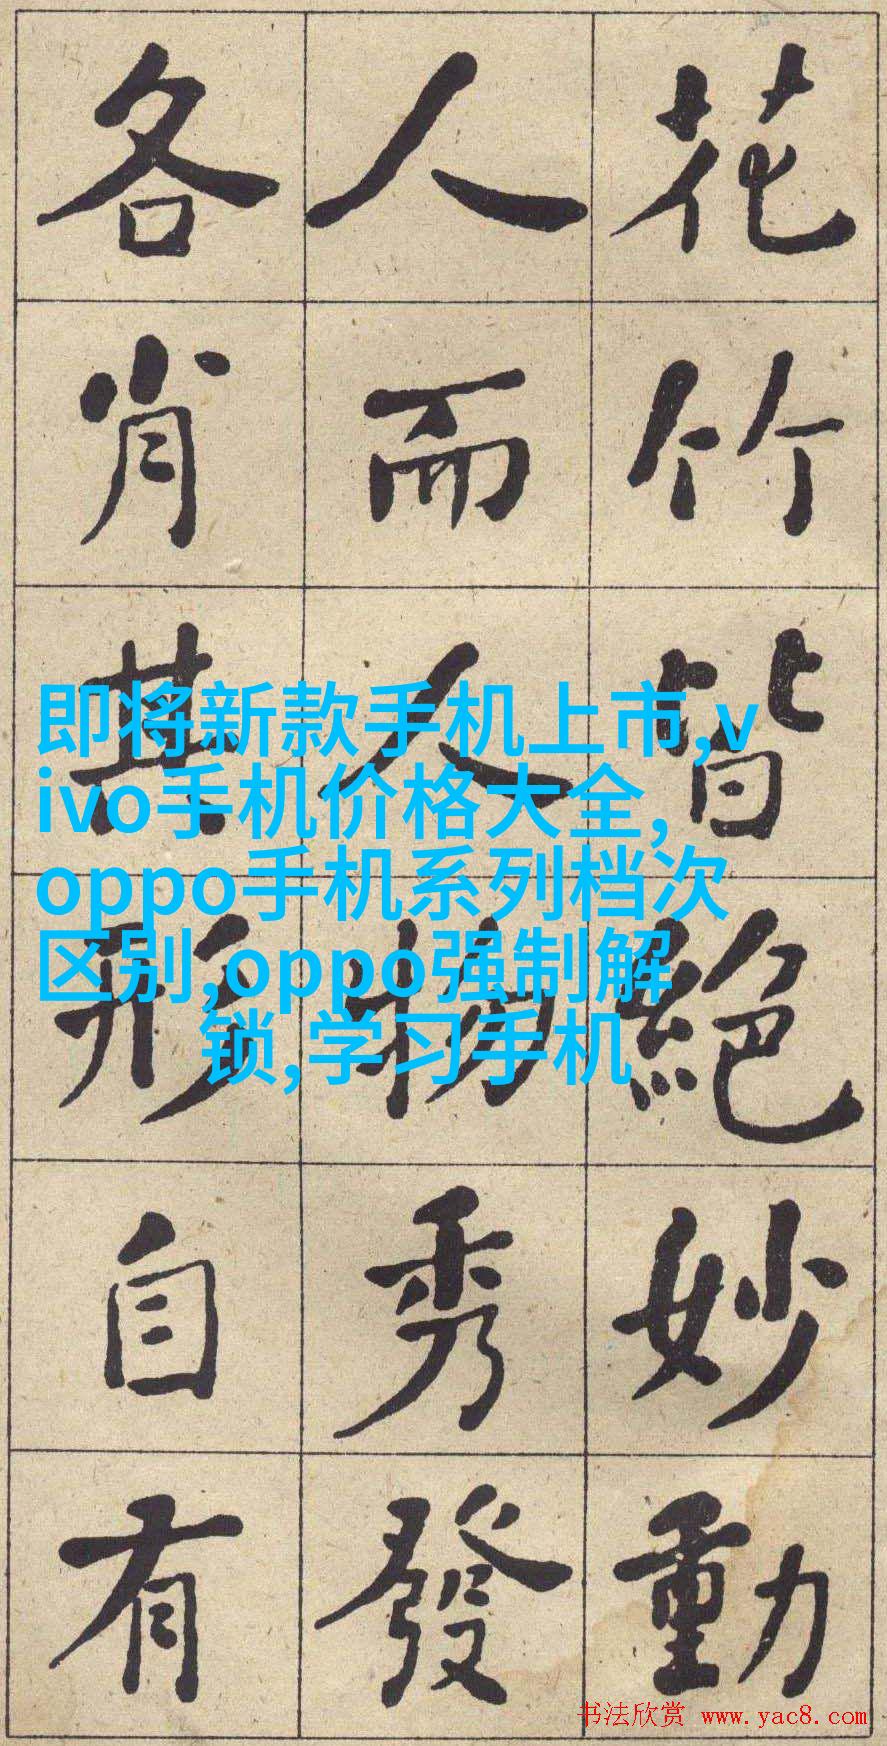 花竹皆絶妙動
人而人物秀發
各肖其形自有
即将新款手机上市,v
ivo手机价格大全,
oppo手机系列档次
区别,oppo强制解
锁,学习手机
书法欣赏 www.yac8.com